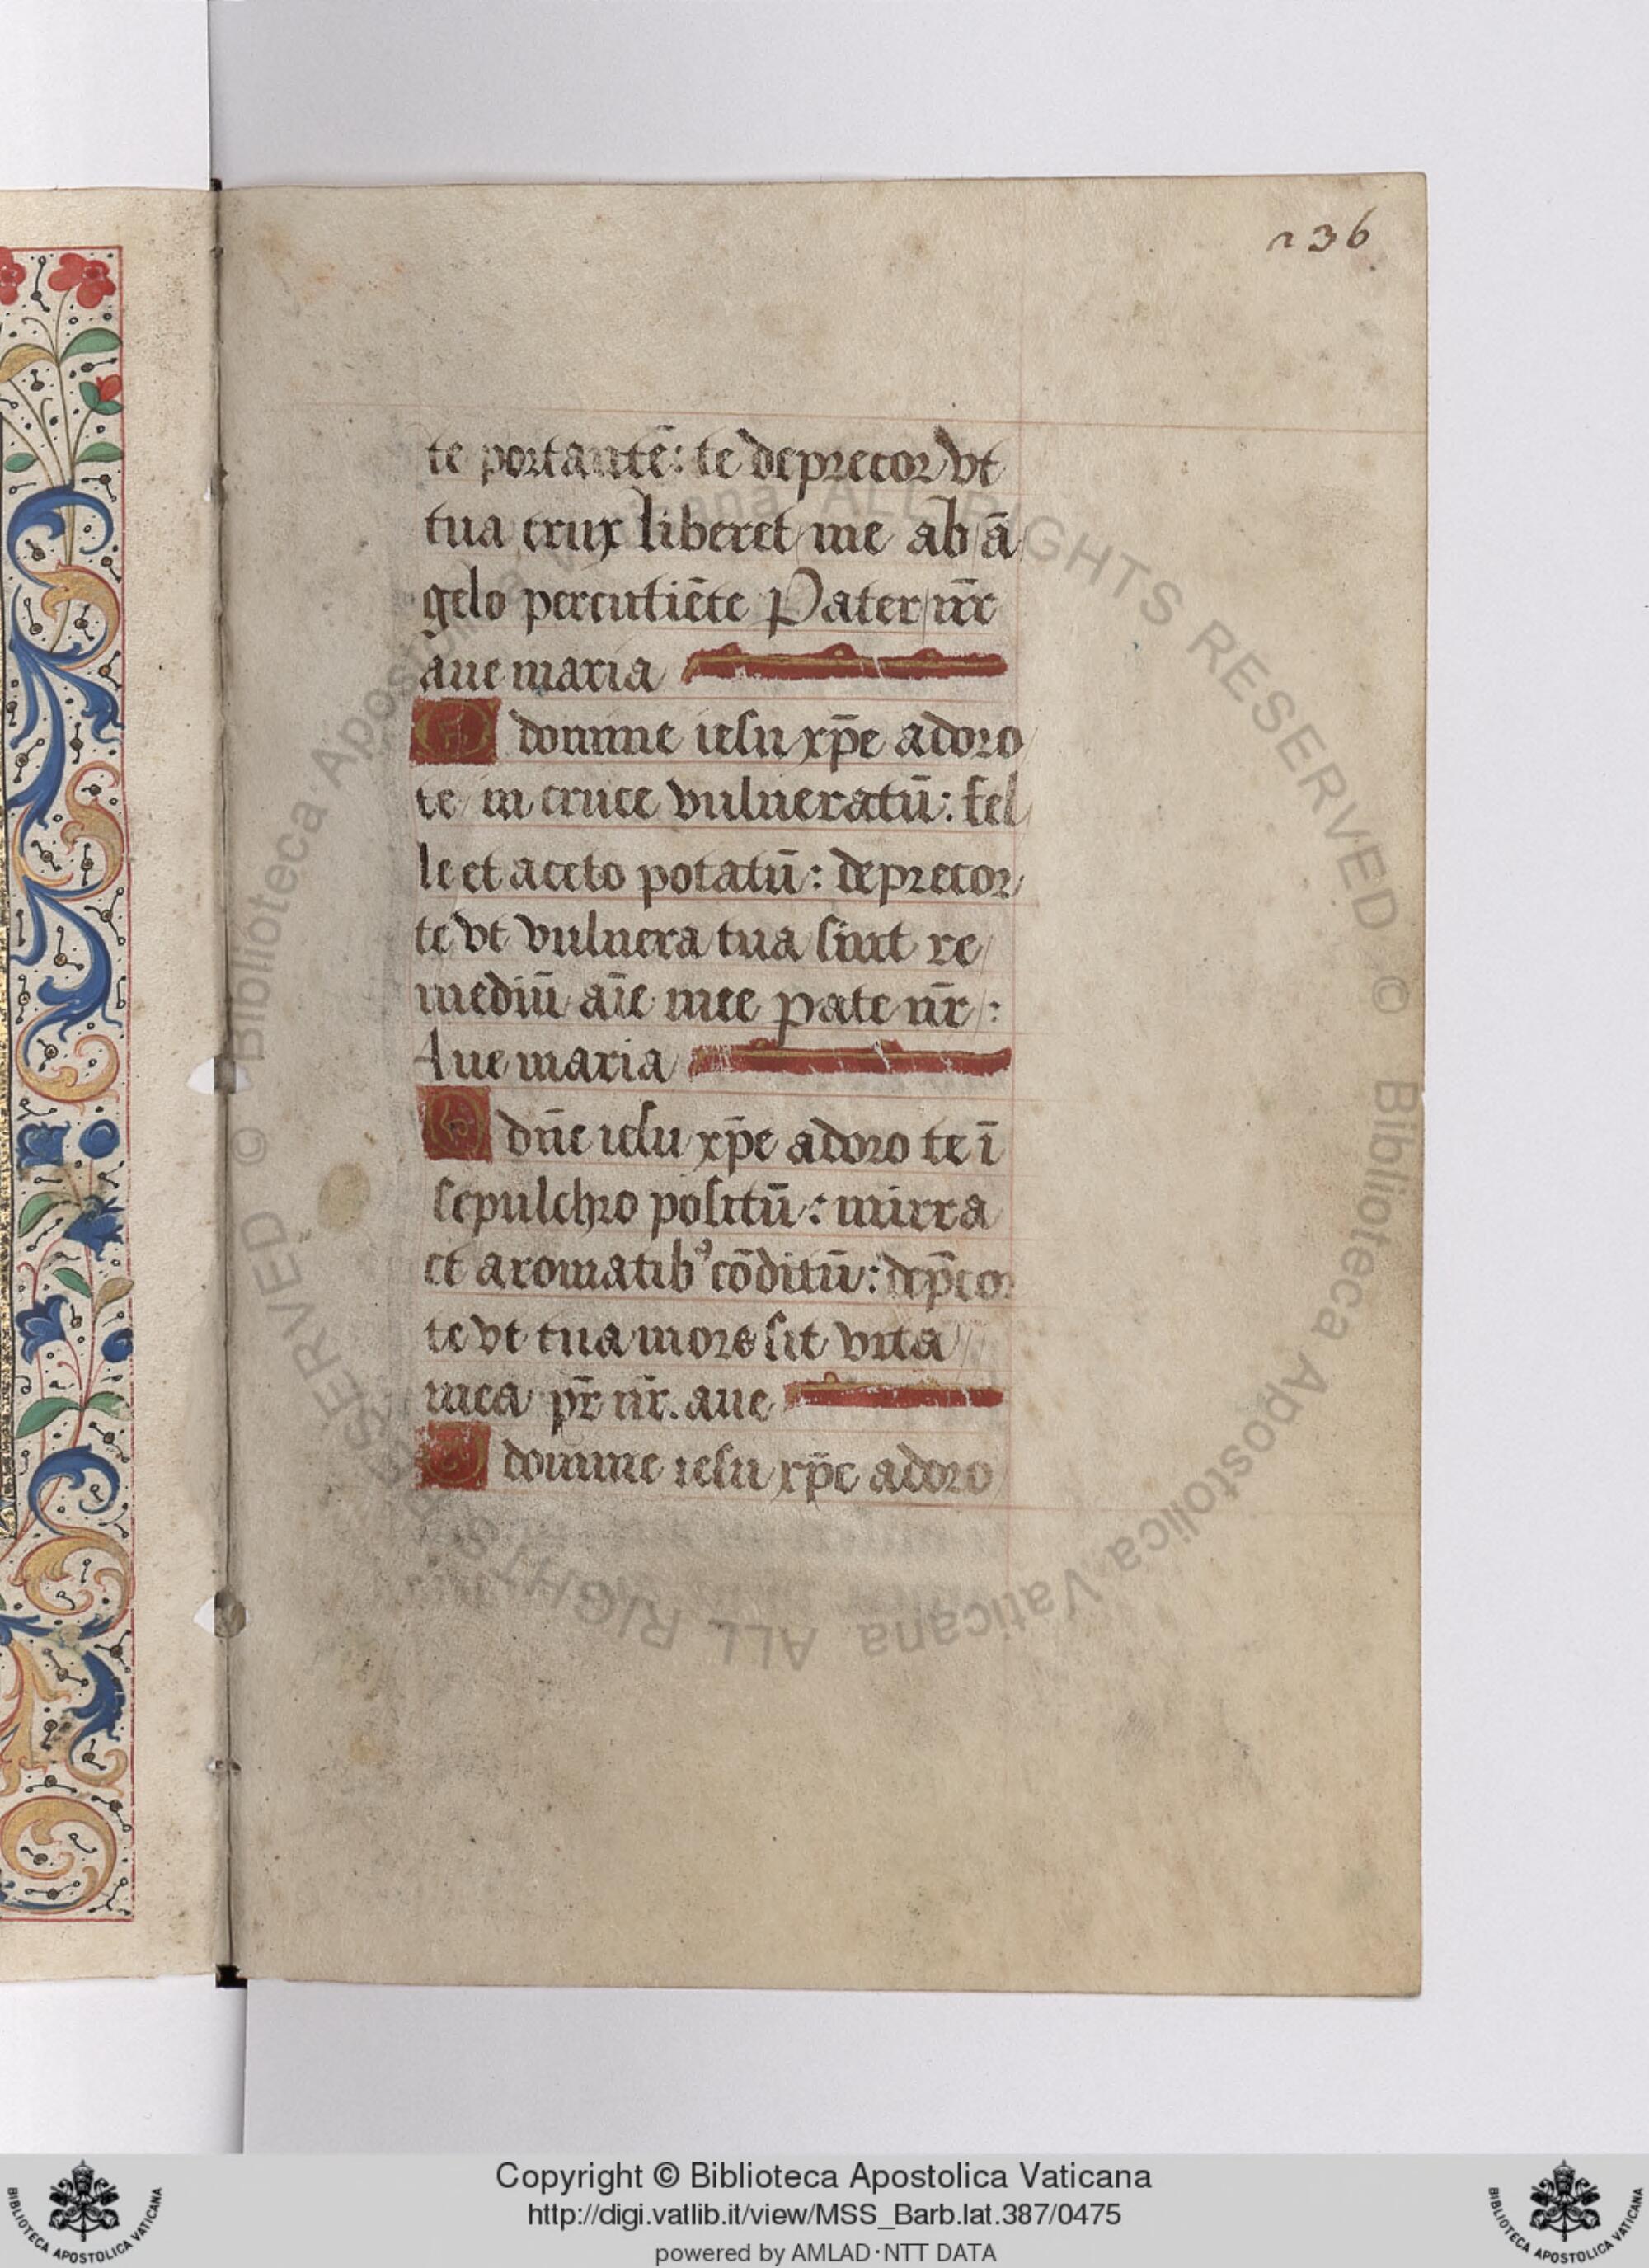 236
te portantē: te deprecor vt
tua crux liberet me ab ā
gelo percutiēte Pater nr̄
aue maria
O domine iesu xp̄e adoro
te in cruce vulneratū: fel
le et aceto potatū: deprecor
te vt vulnera tua sint re
mediū aīe mee pate nr̄:
Aue maria
O dn̄e iesu xp̄e adoro te ī
sepulchro positū: mirra
et aromatibꝰ cōditū: dep̄cor
te vt tua mors sit vita
mea pr̄ nr̄. aue
O domine iesu xp̄e adoro
© Biblioteca Apostolica Vaticana ALL RIGHTS RESERVED © Biblioteca Apostolica Vaticana ALL RIGHTS RESERVED
Copyright © Biblioteca Apostolica Vaticana
http://digi.vatlib.it/view/MSS_Barb.lat.387/0475
powered by AMLAD·NTT DATA
BIBLIOTECA APOSTOLICA VATICANA
BIBLIOTECA APOSTOLICA VATICANA